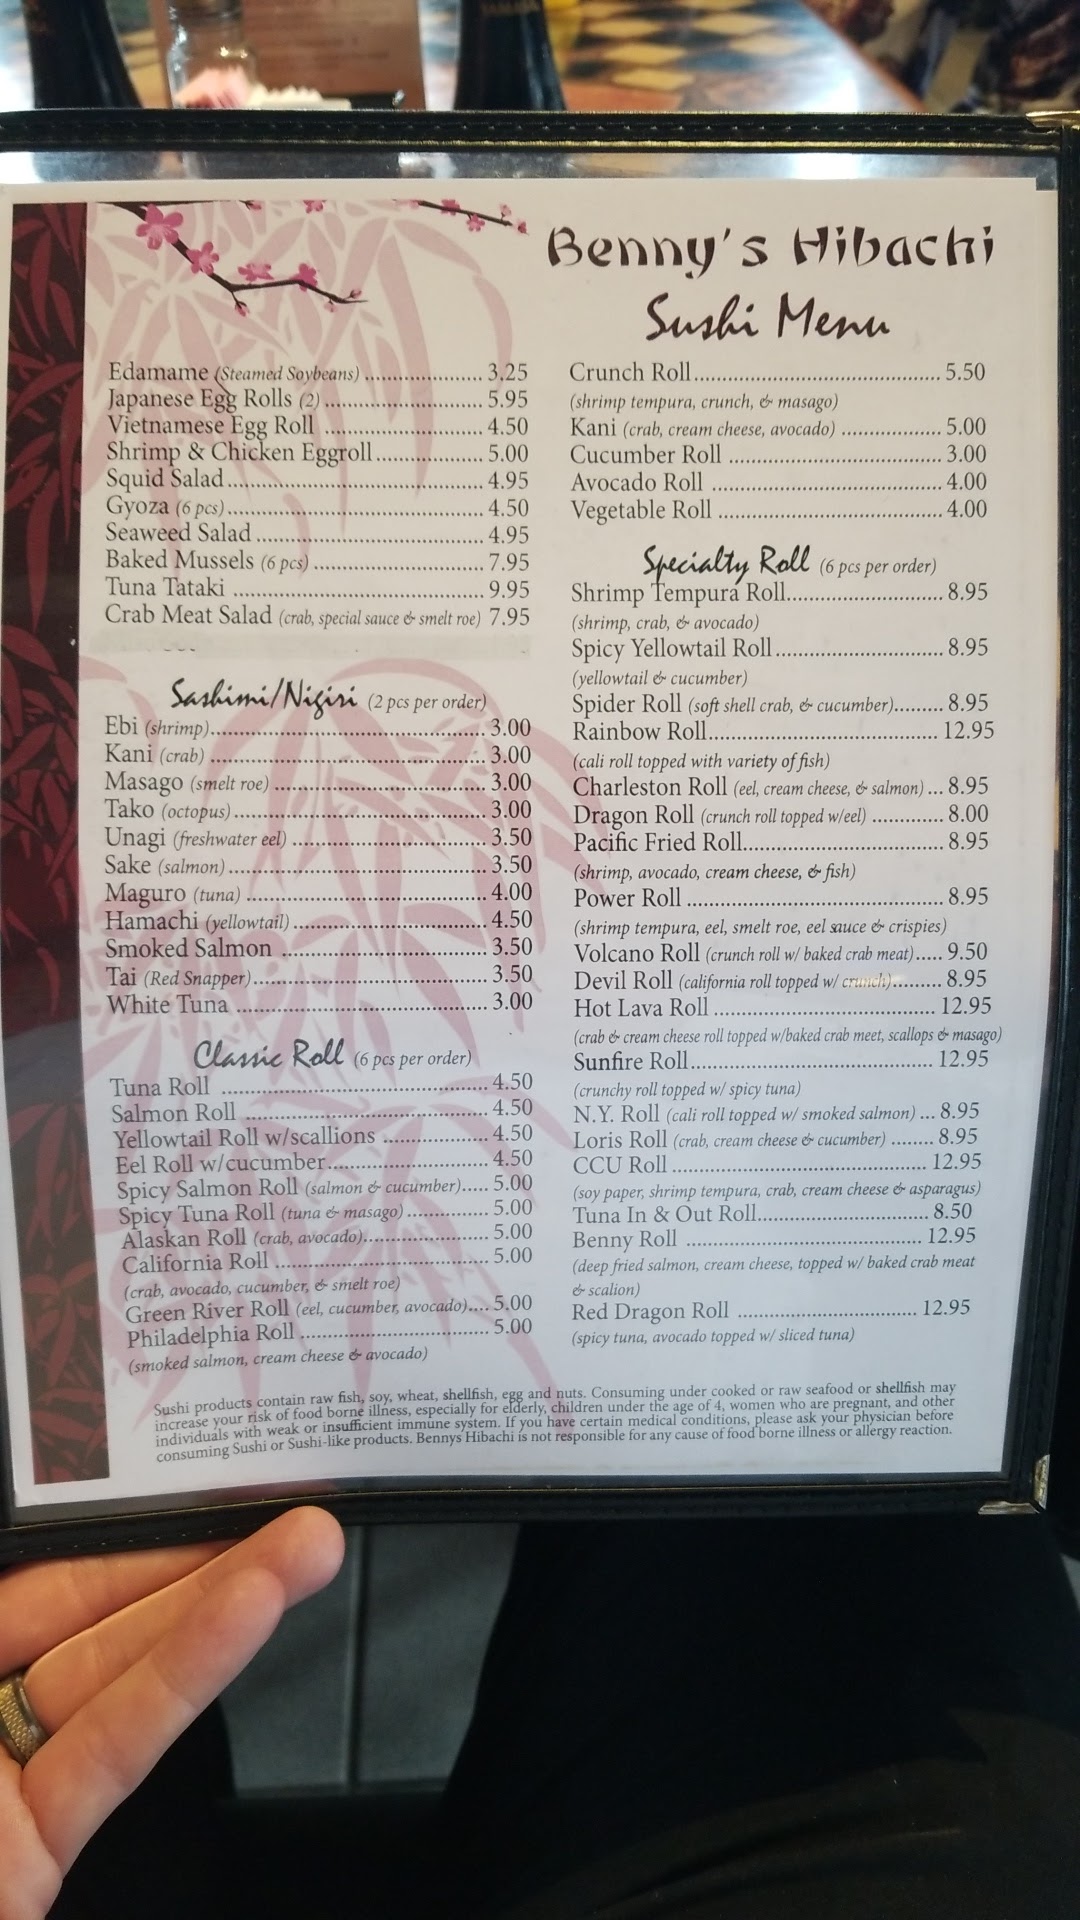 Benny's Hibachi
Sushi Menu
Edamame (Steamed Soybeans) ..................... 3.25
Japanese Egg Rolls (2) ............................ 5.95
Vietnamese Egg Roll ............................ 4.50
Shrimp & Chicken Eggroll ................... 5.00
Squid Salad ............................................. 4.95
Gyoza (6 pcs) ............................................. 4.50
Seaweed Salad ........................................ 4.95
Baked Mussels (6 pcs) .............................. 7.95
Tuna Tataki ............................................. 9.95
Crab Meat Salad (crab, special sauce & smelt roe) 7.95
Sashimi/Nigiri (2 pcs per order)
Ebi (shrimp) ................................................ 3.00
Kani (crab) ................................................ 3.00
Masago (smelt roe) ..................................... 3.00
Tako (octopus) ............................................ 3.00
Unagi (freshwater eel) .................................. 3.50
Sake (salmon) ............................................. 3.50
Maguro (tuna) .......................................... 4.00
Hamachi (yellowtail) .................................. 4.50
Smoked Salmon .................................... 3.50
Tai (Red Snapper) ......................................... 3.50
White Tuna ........................................... 3.00
Classic Roll (6 pcs per order)
Tuna Roll .............................................. 4.50
Salmon Roll .......................................... 4.50
Yellowtail Roll w/scallions .................. 4.50
Eel Roll w/cucumber ............................ 4.50
Spicy Salmon Roll (salmon & cucumber) ..... 5.00
Spicy Tuna Roll (tuna & masago) .............. 5.00
Alaskan Roll (crab, avocado) ..................... 5.00
California Roll ..................................... 5.00
(crab, avocado, cucumber, & smelt roe)
Green River Roll (eel, cucumber, avocado) .... 5.00
Philadelphia Roll ................................. 5.00
(smoked salmon, cream cheese & avocado)
Crunch Roll ............................................ 5.50
(shrimp tempura, crunch, & masago)
Kani (crab, cream cheese, avocado) ................. 5.00
Cucumber Roll ..................................... 3.00
Avocado Roll ........................................ 4.00
Vegetable Roll ...................................... 4.00
Specialty Roll (6 pcs per order)
Shrimp Tempura Roll ........................... 8.95
(shrimp, crab, & avocado)
Spicy Yellowtail Roll ............................. 8.95
(yellowtail & cucumber)
Spider Roll (soft shell crab, & cucumber) ......... 8.95
Rainbow Roll ....................................... 12.95
(cali roll topped with variety of fish)
Charleston Roll (eel, cream cheese, & salmon) ... 8.95
Dragon Roll (crunch roll topped w/eel) ............. 8.00
Pacific Fried Roll ................................... 8.95
(shrimp, avocado, cream cheese, & fish)
Power Roll ............................................ 8.95
(shrimp tempura, eel, smelt roe, eel sauce & crispies)
Volcano Roll (crunch roll w/ baked crab meat) ..... 9.50
Devil Roll (california roll topped w/ crunch) ......... 8.95
Hot Lava Roll ....................................... 12.95
(crab & cream cheese roll topped w/baked crab meet, scallops & masago)
Sunfire Roll .......................................... 12.95
(crunchy roll topped w/ spicy tuna)
N.Y. Roll (cali roll topped w/ smoked salmon) ... 8.95
Loris Roll (crab, cream cheese & cucumber) ........ 8.95
CCU Roll ............................................. 12.95
(soy paper, shrimp tempura, crab, cream cheese & asparagus)
Tuna In & Out Roll ............................... 8.50
Benny Roll .......................................... 12.95
(deep fried salmon, cream cheese, topped w/ baked crab meat
& scalion)
Red Dragon Roll ................................ 12.95
(spicy tuna, avocado topped w/ sliced tuna)
Sushi products contain raw fish, soy, wheat, shellfish, egg and nuts. Consuming under cooked or raw seafood or shellfish may
increase your risk of food borne illness, especially for elderly, children under the age of 4, women who are pregnant, and other
individuals with weak or insufficient immune system. If you have certain medical conditions, please ask your physician before
consuming Sushi or Sushi-like products. Bennys Hibachi is not responsible for any cause of food borne illness or allergy reaction.